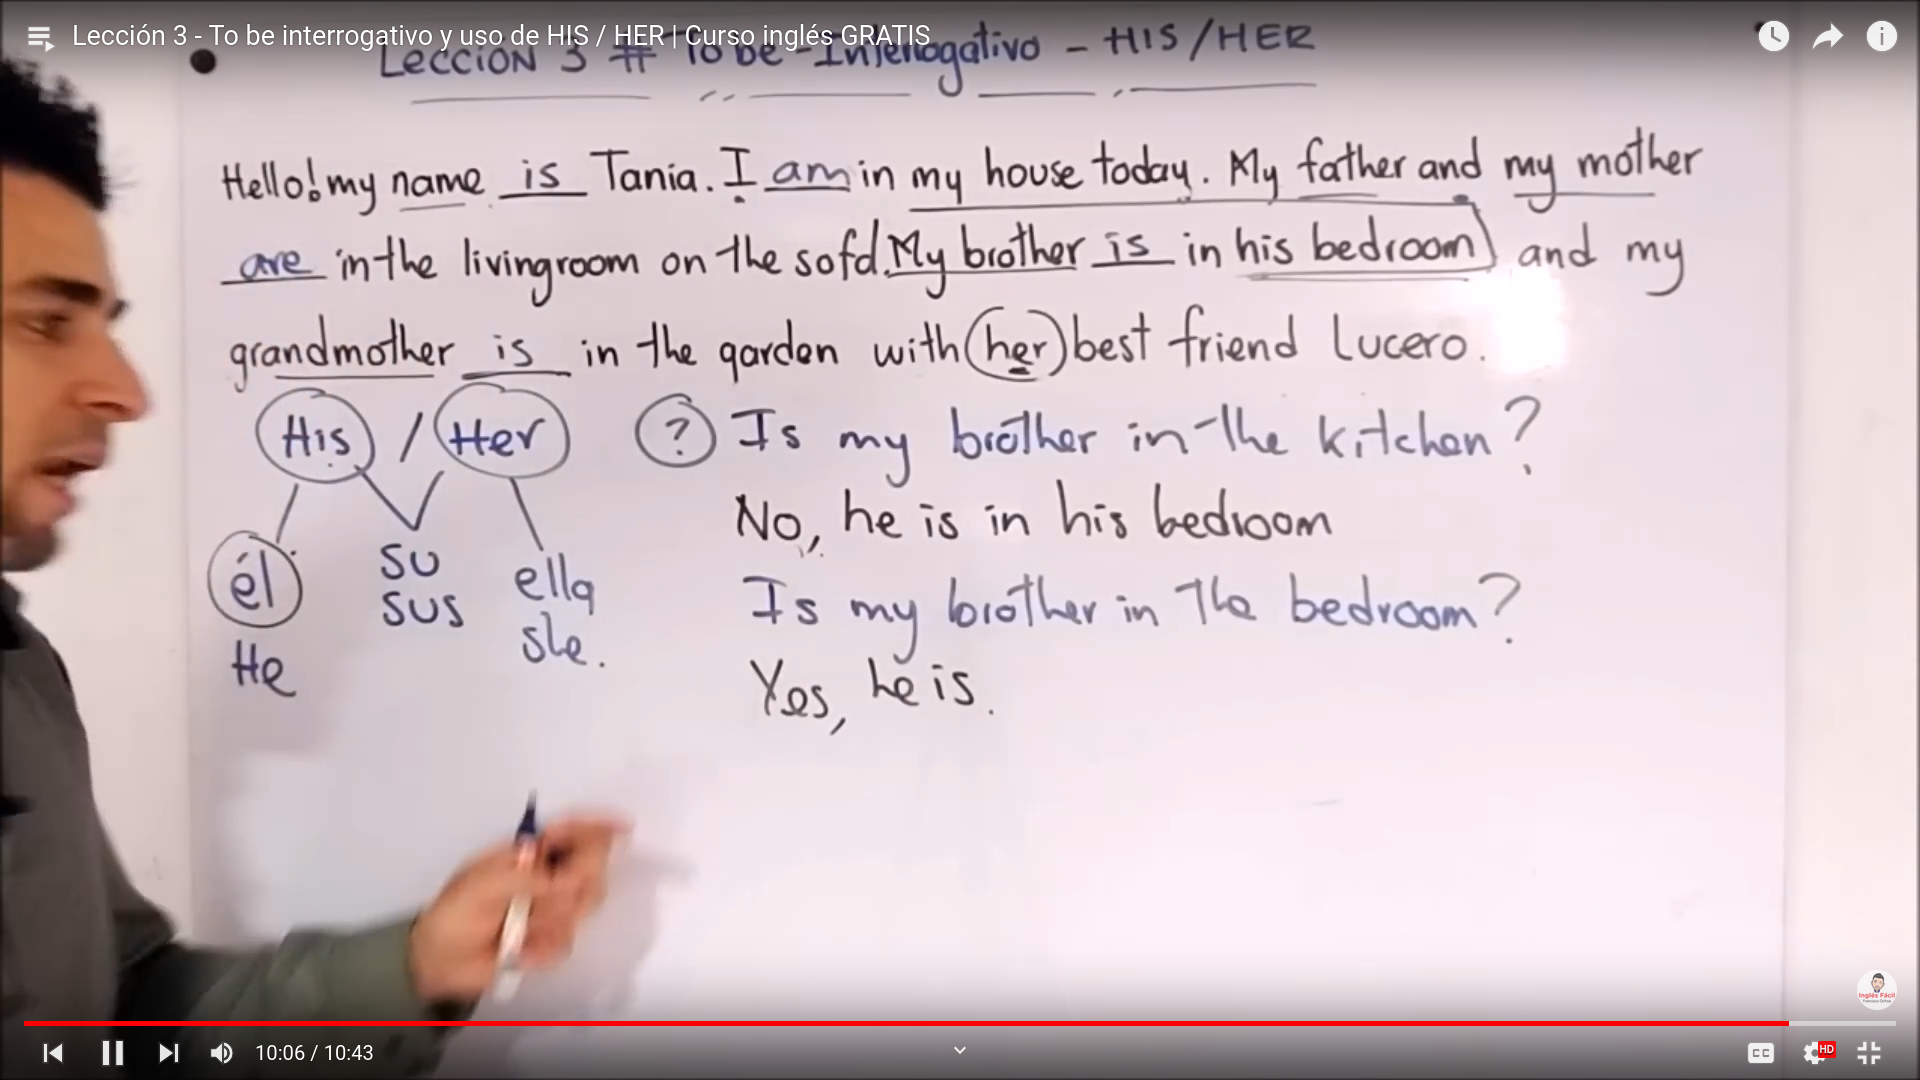 Lección 3 - To be interrogativo y uso de HIS / HER | Curso inglés GRATIS
Lección 3 # To be - Interrogativo - HIS/HER
Hello! my name is Tania. I am in my house today. My father and my mother
are in the livingroom on the sofa. My brother is in his bedroom) and my
grandmother is in the garden with her best friend Lucero.
His / Her
él
He
su
sus
ella
she.
? Is my brother in the kitchen?
No, he is in his bedroom
Is my brother in the bedroom?
Yes, he is.
Inglés Fácil
10:06 / 10:43
CC
HD